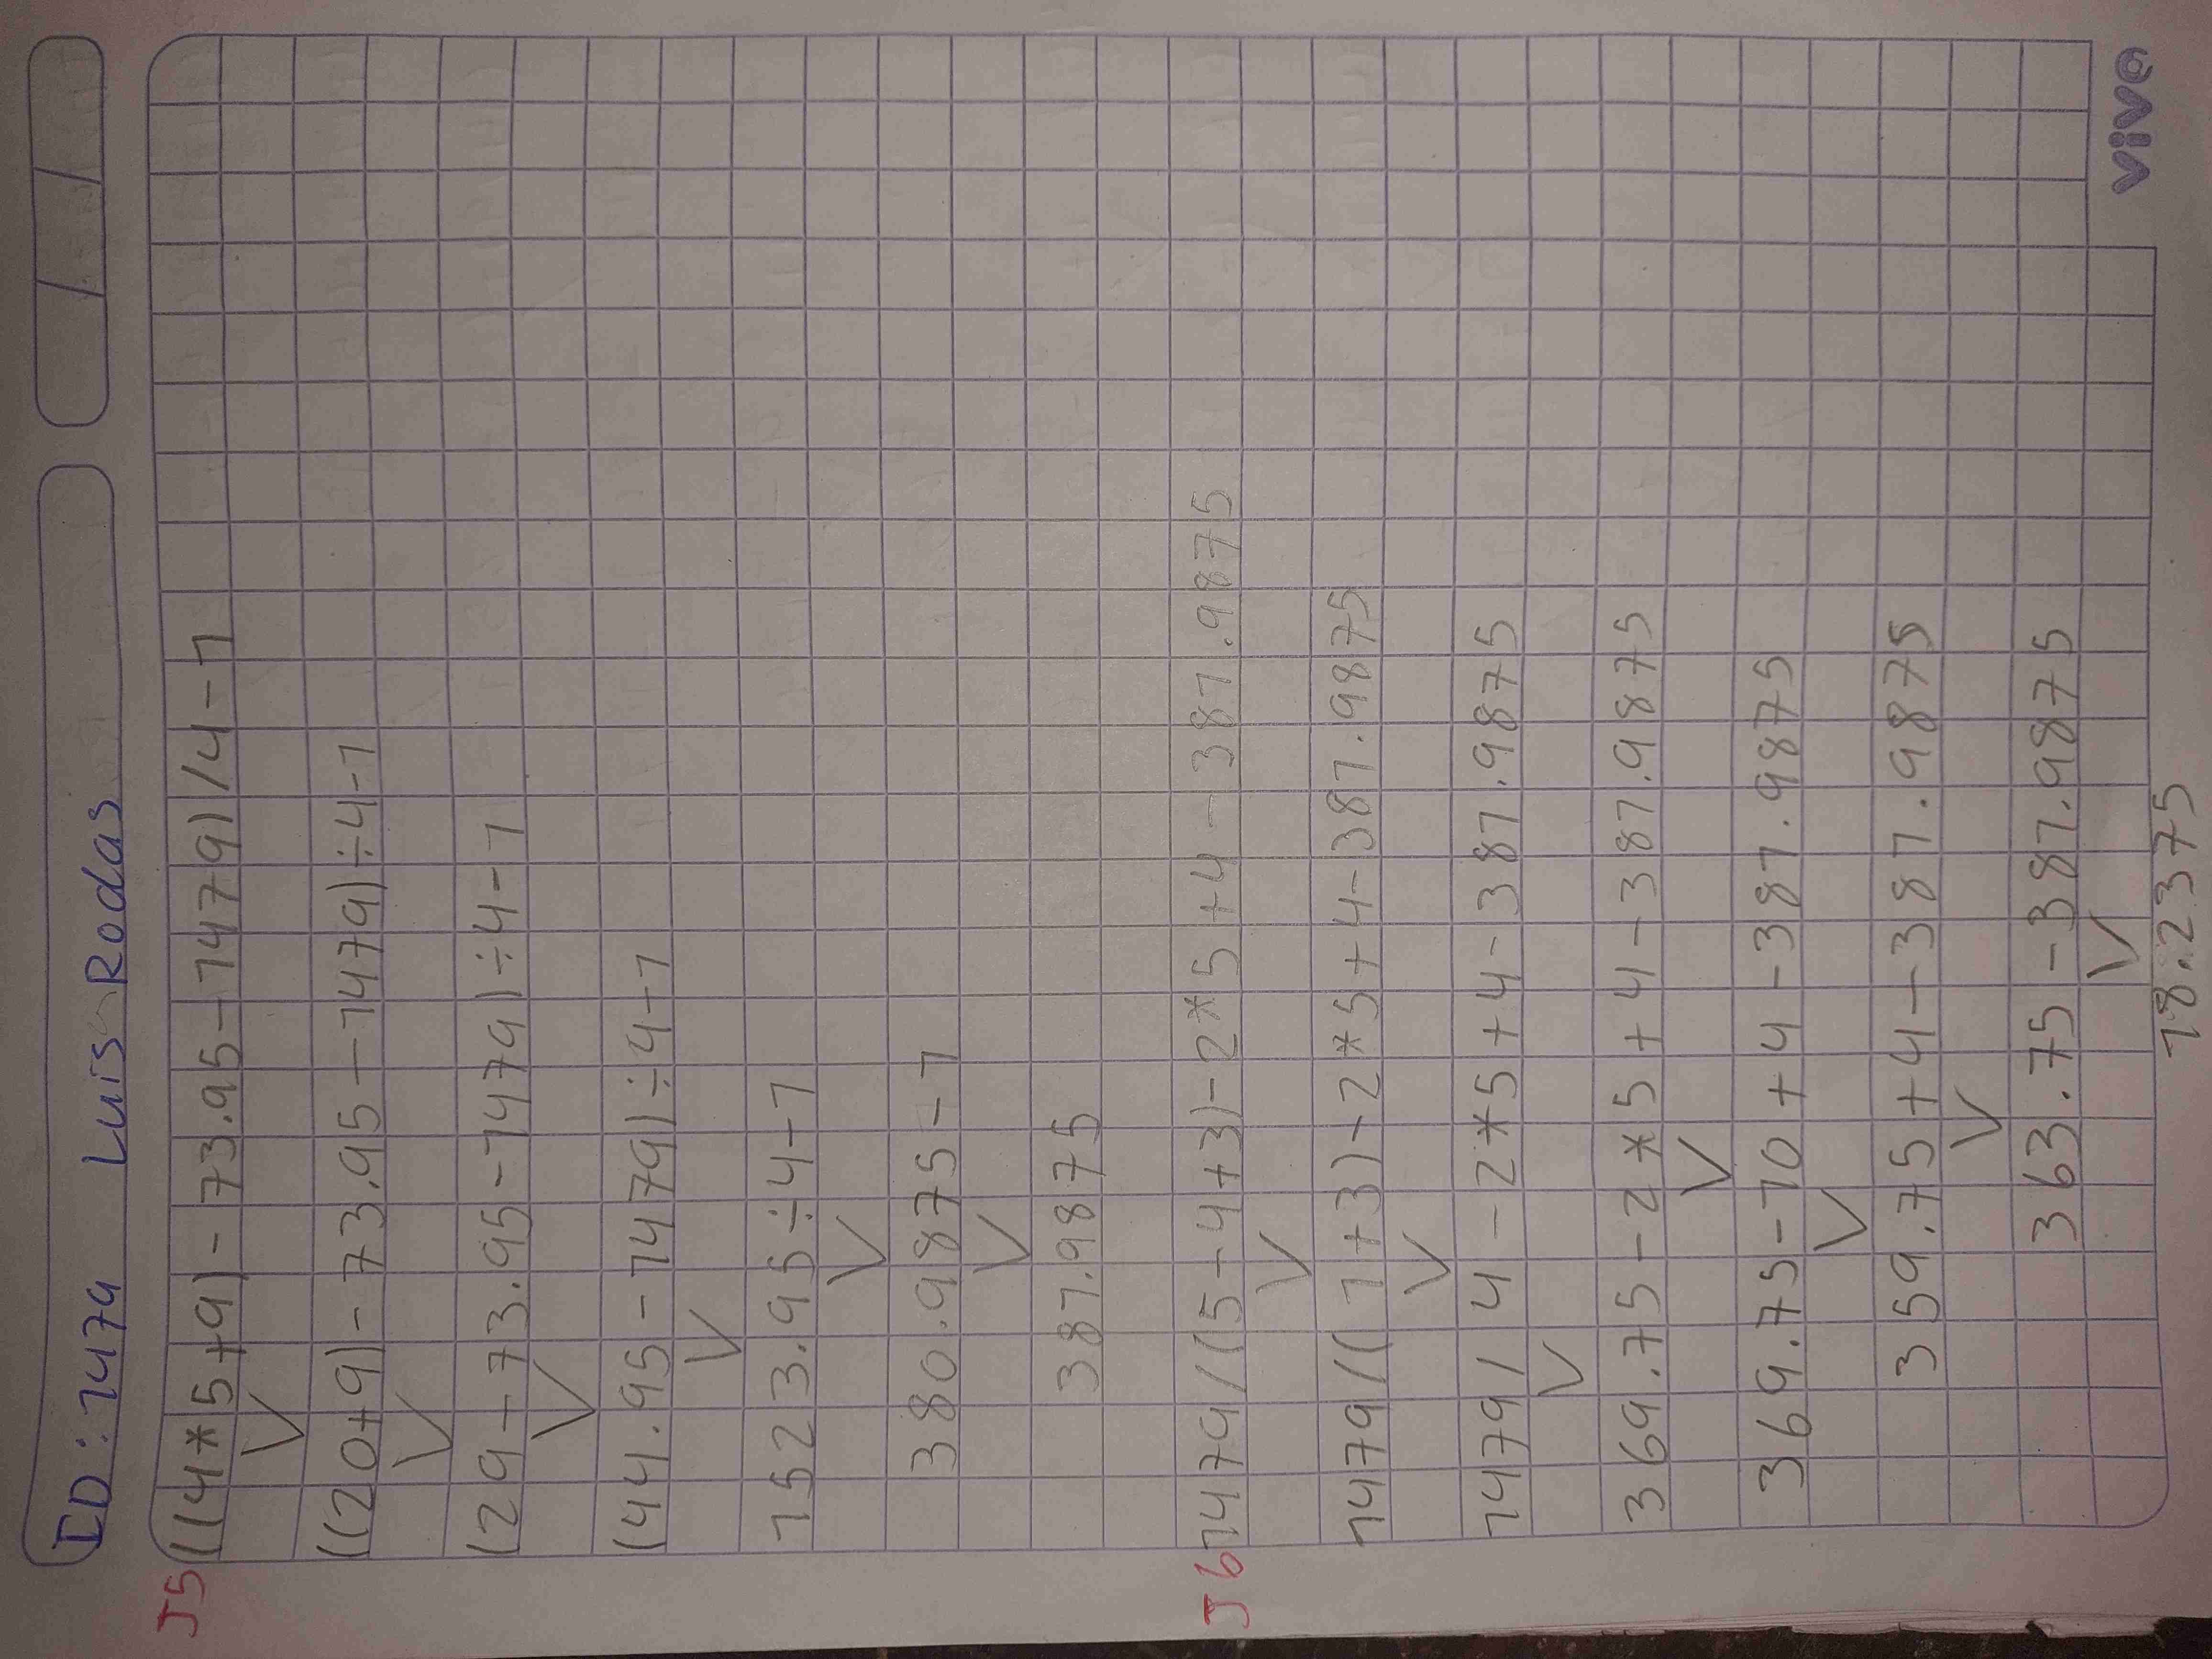 ID: 1479 Luis Rodas
J5 ((4*5+9)-73.95-1479)/4-1
((20+9)-73.95-1479)÷4-1
(29-73.95-1479)÷4-1
(44.95-1479)÷4-1
1523.95÷4-1
380.9875-1
381.9875
J6 1479/(5-4+3)-2*5+4-381.9875
1479/(1+3)-2*5+4-381.9875
1479/4-2*5+4-381.9875
369.75-2*5+4-381.9875
369.75-10+4-381.9875
359.75+4-381.9875
363.75-381.9875
18.2375
vivo